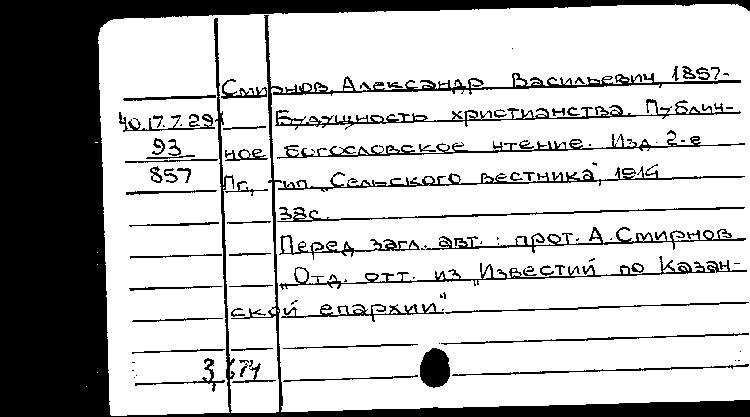 Смирнов, Александр Васильевич, 1857-
40.17.7.29 Будущность христианства. Публич-
93 ное богословское чтение. Изд 2-е
857 Пг., тип. „Сельского вестника", 1914
38с.
Перед загл. авт.: прот. А. Смирнов
„Отд. отт. из „Известий по Казан-
ской епархии."
3,674